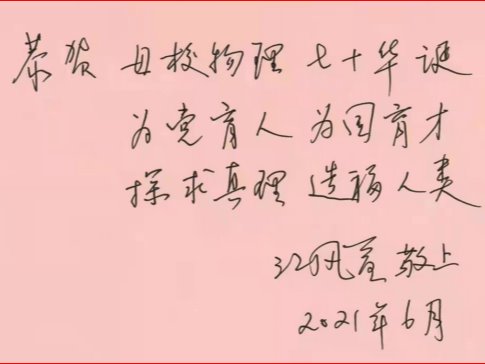 恭贺 母校物理 七十华诞
为党育人 为国育才
探求真理 造福人类
江风益敬上
2021年6月